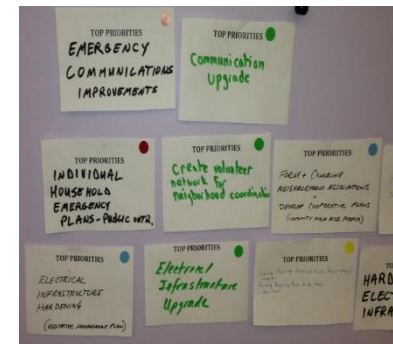 TOP PRIORITIES
EMERGENCY
COMMUNICATIONS
IMPROVEMENTS
TOP PRIORITIES
Communication
Upgrade
TOP PRIORITIES
INDIVIDUAL
HOUSEHOLD
EMERGENCY
PLANS - PUBLIC
TOP PRIORITIES
Create volunteer
network for
neighborhood coordination
TOP PRIORITIES
FORM + COMBINE
NEIGHBORHOOD ASSOCIATIONS
+
DEVELOP COOPERATIVE PLANS
(IDENTIFY HIGH RISK PEOPLE)
TOP PRIORITIES
ELECTRICAL
INFRASTRUCTURE
HARDENING
(VEGETATIVE MANAGEMENT PLAN)
TOP PRIORITIES
Electrical
Infrastructure
Upgrade
TOP PRIORITIES
TOP
HARD
ELEC
INFRA